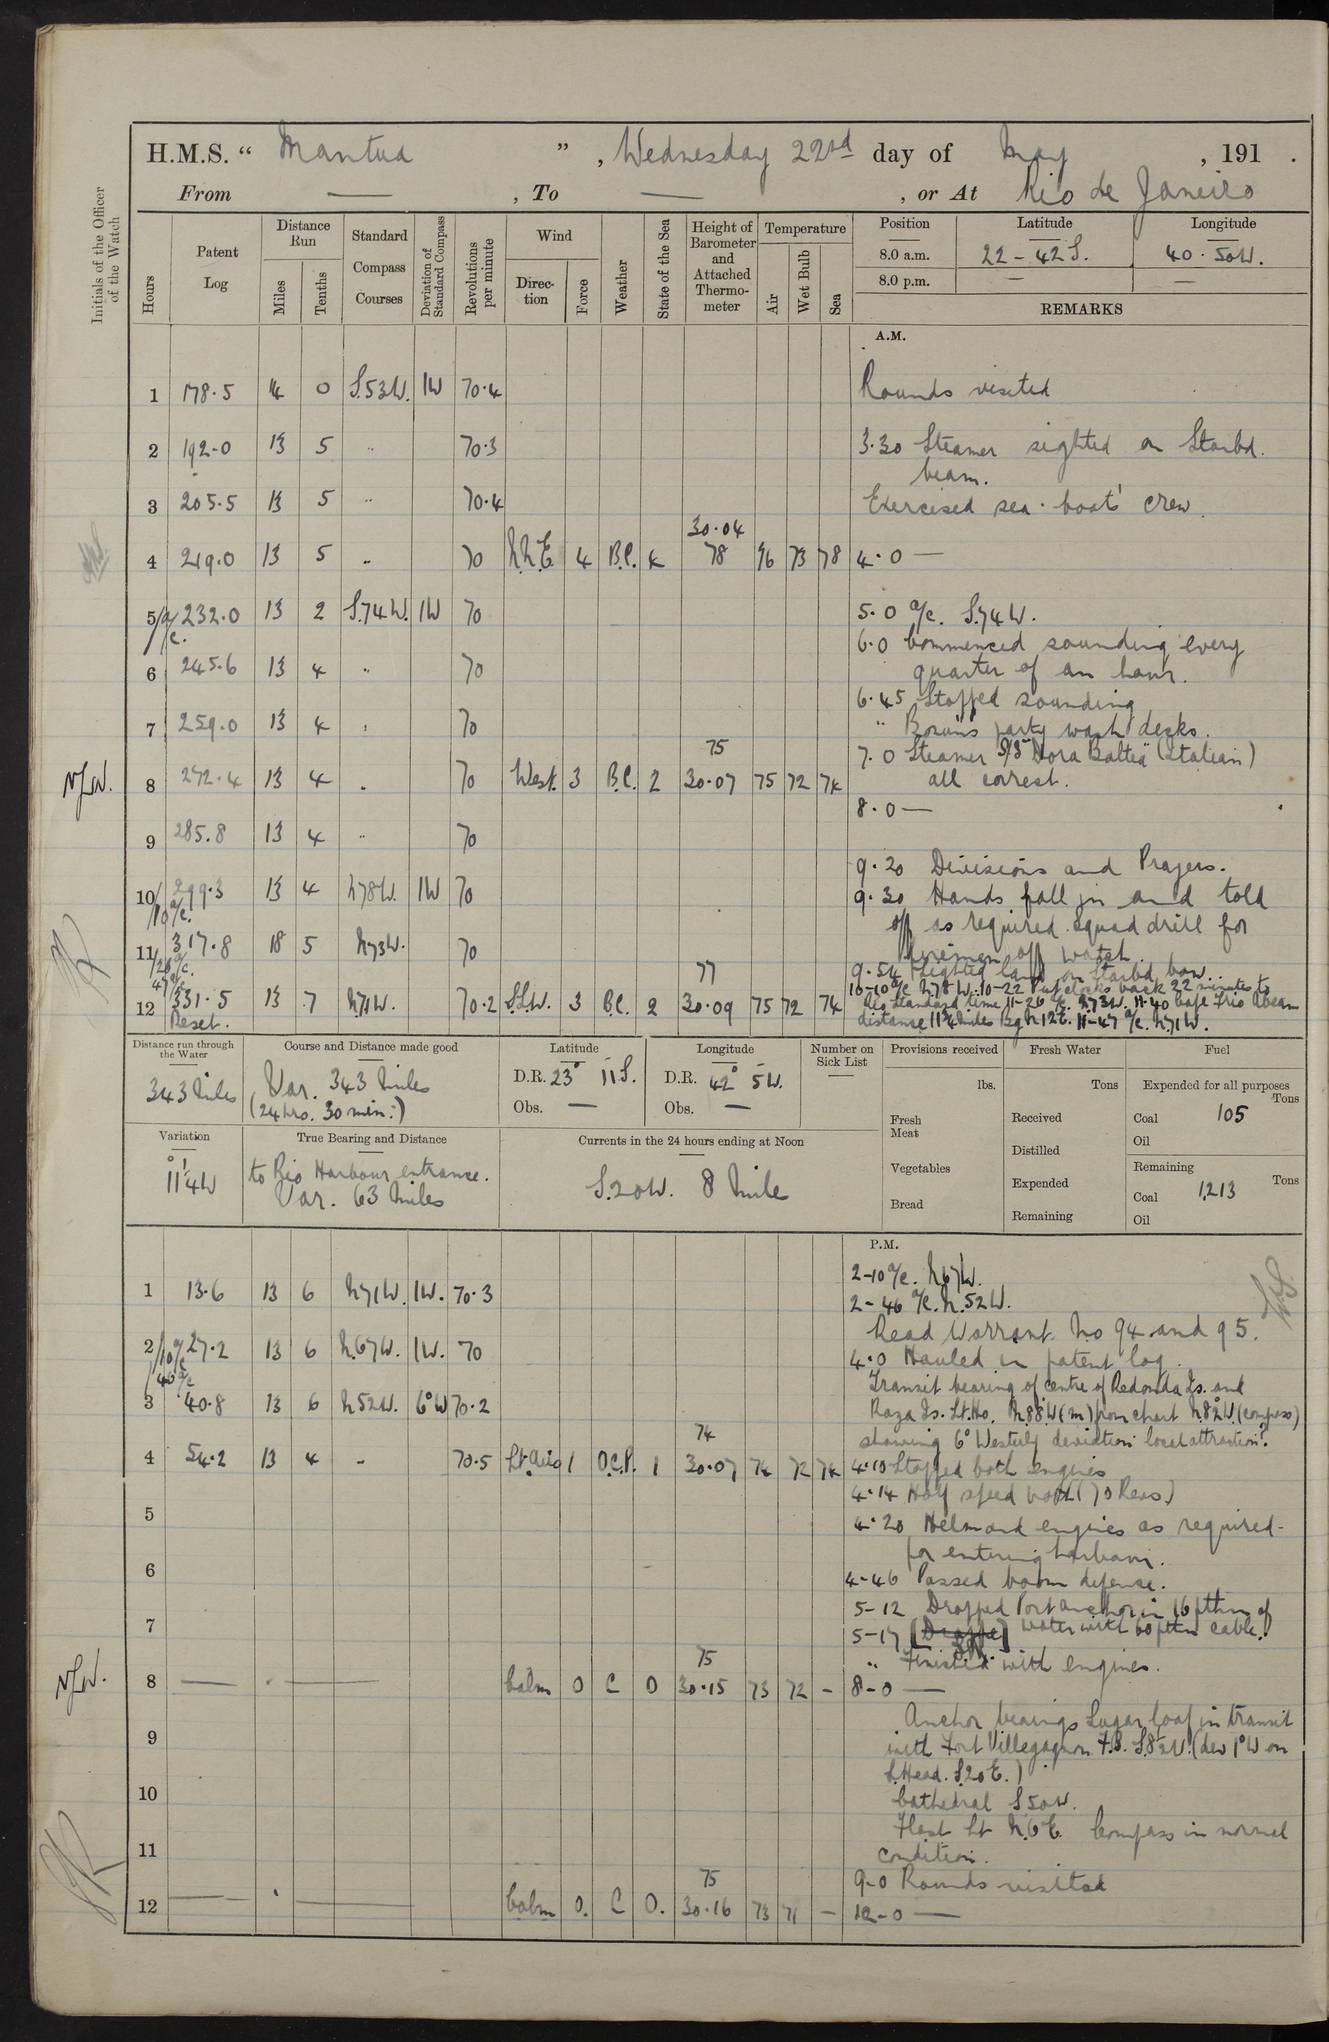 H.M.S. " Mantua " , Wednesday 22nd day of May , 191 .
From — , To — , or At Rio de Janeiro
Initials of the Officer of the Watch
Hours
Patent Log
Distance Run
Miles
Tenths
Standard Compass Courses
Deviation of Standard Compass
Revolutions per minute
Wind
Direction
Force
Weather
State of the Sea
Height of Barometer and Attached Thermometer
Temperature
Air
Wet Bulb
Sea
Position Latitude Longitude
8.0 a.m. 22 - 42 S. 40 . 50 W.
8.0 p.m. — —
REMARKS
A.M.
1 178.5 14 0 S.53W. 1W 70.4 Rounds visited
2 192.0 13 5 " 70.3 3.30 Steamer sighted on Starbd.
beam.
3 205.5 13 5 " 70.4 Exercised sea-boats' crew
30.04
4 219.0 13 5 " 70 N.N.E 4 B.C. 4 78 76 73 78 4.0 —
5/a/c. 232.0 13 2 S.74W. 1W 70 5.0 a/c. S.74W.
6.0 Commenced sounding every
6 245.6 13 4 " 70 quarter of an hour.
6.45 Stopped sounding
7 259.0 13 4 " 70 " Bosun's party wash decks.
75 7.0 Steamer S/S "Dora Baltea" (Italian)
N.J.W. 8 272.4 13 4 " 70 West. 3 B.C. 2 30.07 75 72 74 all correct.
8.0 —
9 285.8 13 4 " 70
9.20 Divisions and Prayers.
10/10 a/c. 299.3 13 4 N78W. 1W 70 9.30 Hands fall in and told
off as required. Squad drill for
11/26 a/c. 317.8 18 5 N73W. 70 firemen off watch
47 a/c 77 9.54 Sighted land on Starbd bow..
10-10 a/c N78W. 10-22 Put clocks back 22 minutes to
12 331.5 13 .7 N71W. 70.2 S.S.W. 3 B.C. 2 30.09 75 72 74 Rio Standard time 11-26 a/c. N73W. 11.40 Cape Frio abeam
Reset. distance 11¾ miles Bg N12E. 11-47 a/c. N71W.
Distance run through the Water
343 Miles
Course and Distance made good
Var. 343 Miles
(24 hrs. 30 min.)
Latitude
D.R. 23° 11 S.
Obs. —
Longitude
D.R. 42° 5 W.
Obs. —
Number on Sick List
—
Provisions received
lbs.
Fresh Meat
Vegetables
Bread
Fresh Water
Tons
Received
Distilled
Expended
Remaining
Fuel
Expended for all purposes
Tons
Coal 105
Oil
Remaining
Tons
Coal 1,213
Oil
Variation
11°4'W
True Bearing and Distance
to Rio Harbour entrance.
Var. 63 Miles
Currents in the 24 hours ending at Noon
S.20W. 8 Mile
P.M.
2-10 a/c. N67W.
1 13.6 13 6 N71W. 1W. 70.3 2-46 a/c. N.52W.
Read Warrant No 94 and 95.
2/10 a/c 27.2 13 6 N.67W. 1W. 70 4.0 Hauled in patent log.
46 a/c Transit bearing of centre of Redonda Is. and
3 40.8 13 6 N52W. 6°W 70.2 Raza Is. Lt. Ho. N.88W (m) from chart N.82W. (compass)
74 showing 6° Westerly deviation local attraction?
4 54.2 13 4 " 70.5 Lt. airs 1 O.C.P. 1 30.07 74 72 74 4.10 Stopped both engines
4.14 Half speed both (70 Revs)
5 4.20 Helm and engines as required
for entering harbour.
6 4-46 Passed boom defence.
5-12 Dropped Port anchor in 16 fthm of
7 5-17 water with 60 fthm cable.
75 " Finished with engines.
N.J.W. 8 — . — Calm 0 C 0 30.15 73 72 - 8-0 —
Anchor bearings Sugar loaf in transit
9 with Fort Villegagnon F.S. S.8½W. (dev 1°W on
S. Head. S.20E.)
10 Cathedral S50W.
Compass in normal
11 condition.
75 9-0 Rounds visited
12 — . — Calm 0. C 0. 30.16 73 71 - 12-0 —